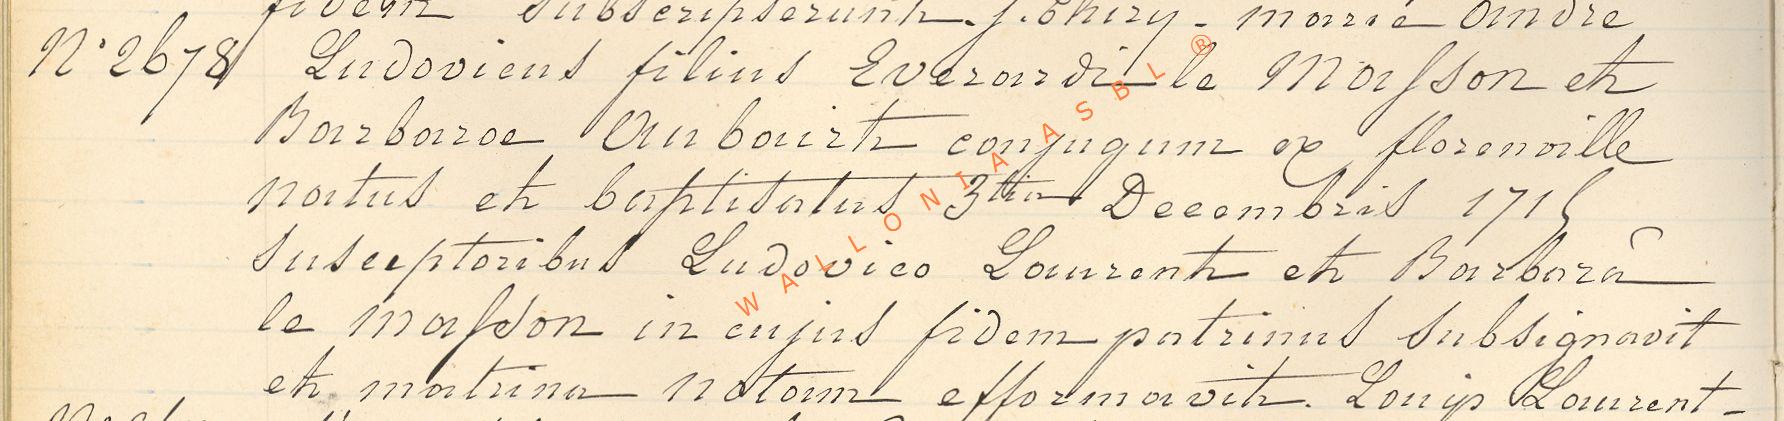 fidem subscripserunt. J. Thiry - marie andre
N° 2678 Ludovicus filius Everardi le Masson et
Barbarae Aubairt conjugum ex florenville
natus et baptisatus 3tia Decembris 1715
susceptoribus Ludovico Laurent et Barbarâ
le Masson in cujus fidem patrinus subsignavit
et matrina notam efformavit. Louis Laurent -
WALLONIA ASBL ®